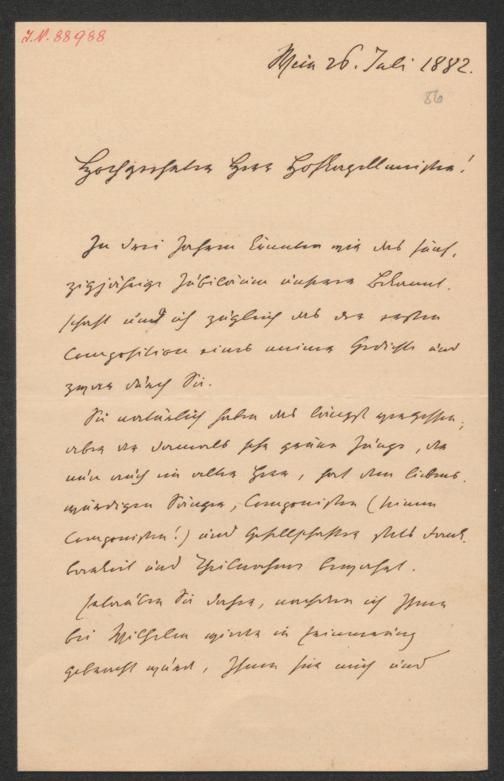 I.N. 88988
Wien 26. Juli 1882.
86
Hochgeehrter Herr Hofkapellmeister!
In drei Jahren könnten wir das fünf-
zigjährige Jubiläum unserer Bekannt-
schaft und ich zugleich das der ersten
Composition eines meiner Gedichte und
zwar durch Sie.
Sie natürlich haben das längst vergessen;
aber der damals sehr grüne Junge, der
nun auch ein alter Herr, hat dem liebens-
würdigen Sänger, Componisten (seinem
Componisten!) und Gesellschafter stets Dank-
barkeit und Theilnahme bewahrt.
Erlauben Sie daher, nachdem ich Ihnen
bei Wilhelm wieder in Erinnerung
gebracht wurde, Ihnen für mich und